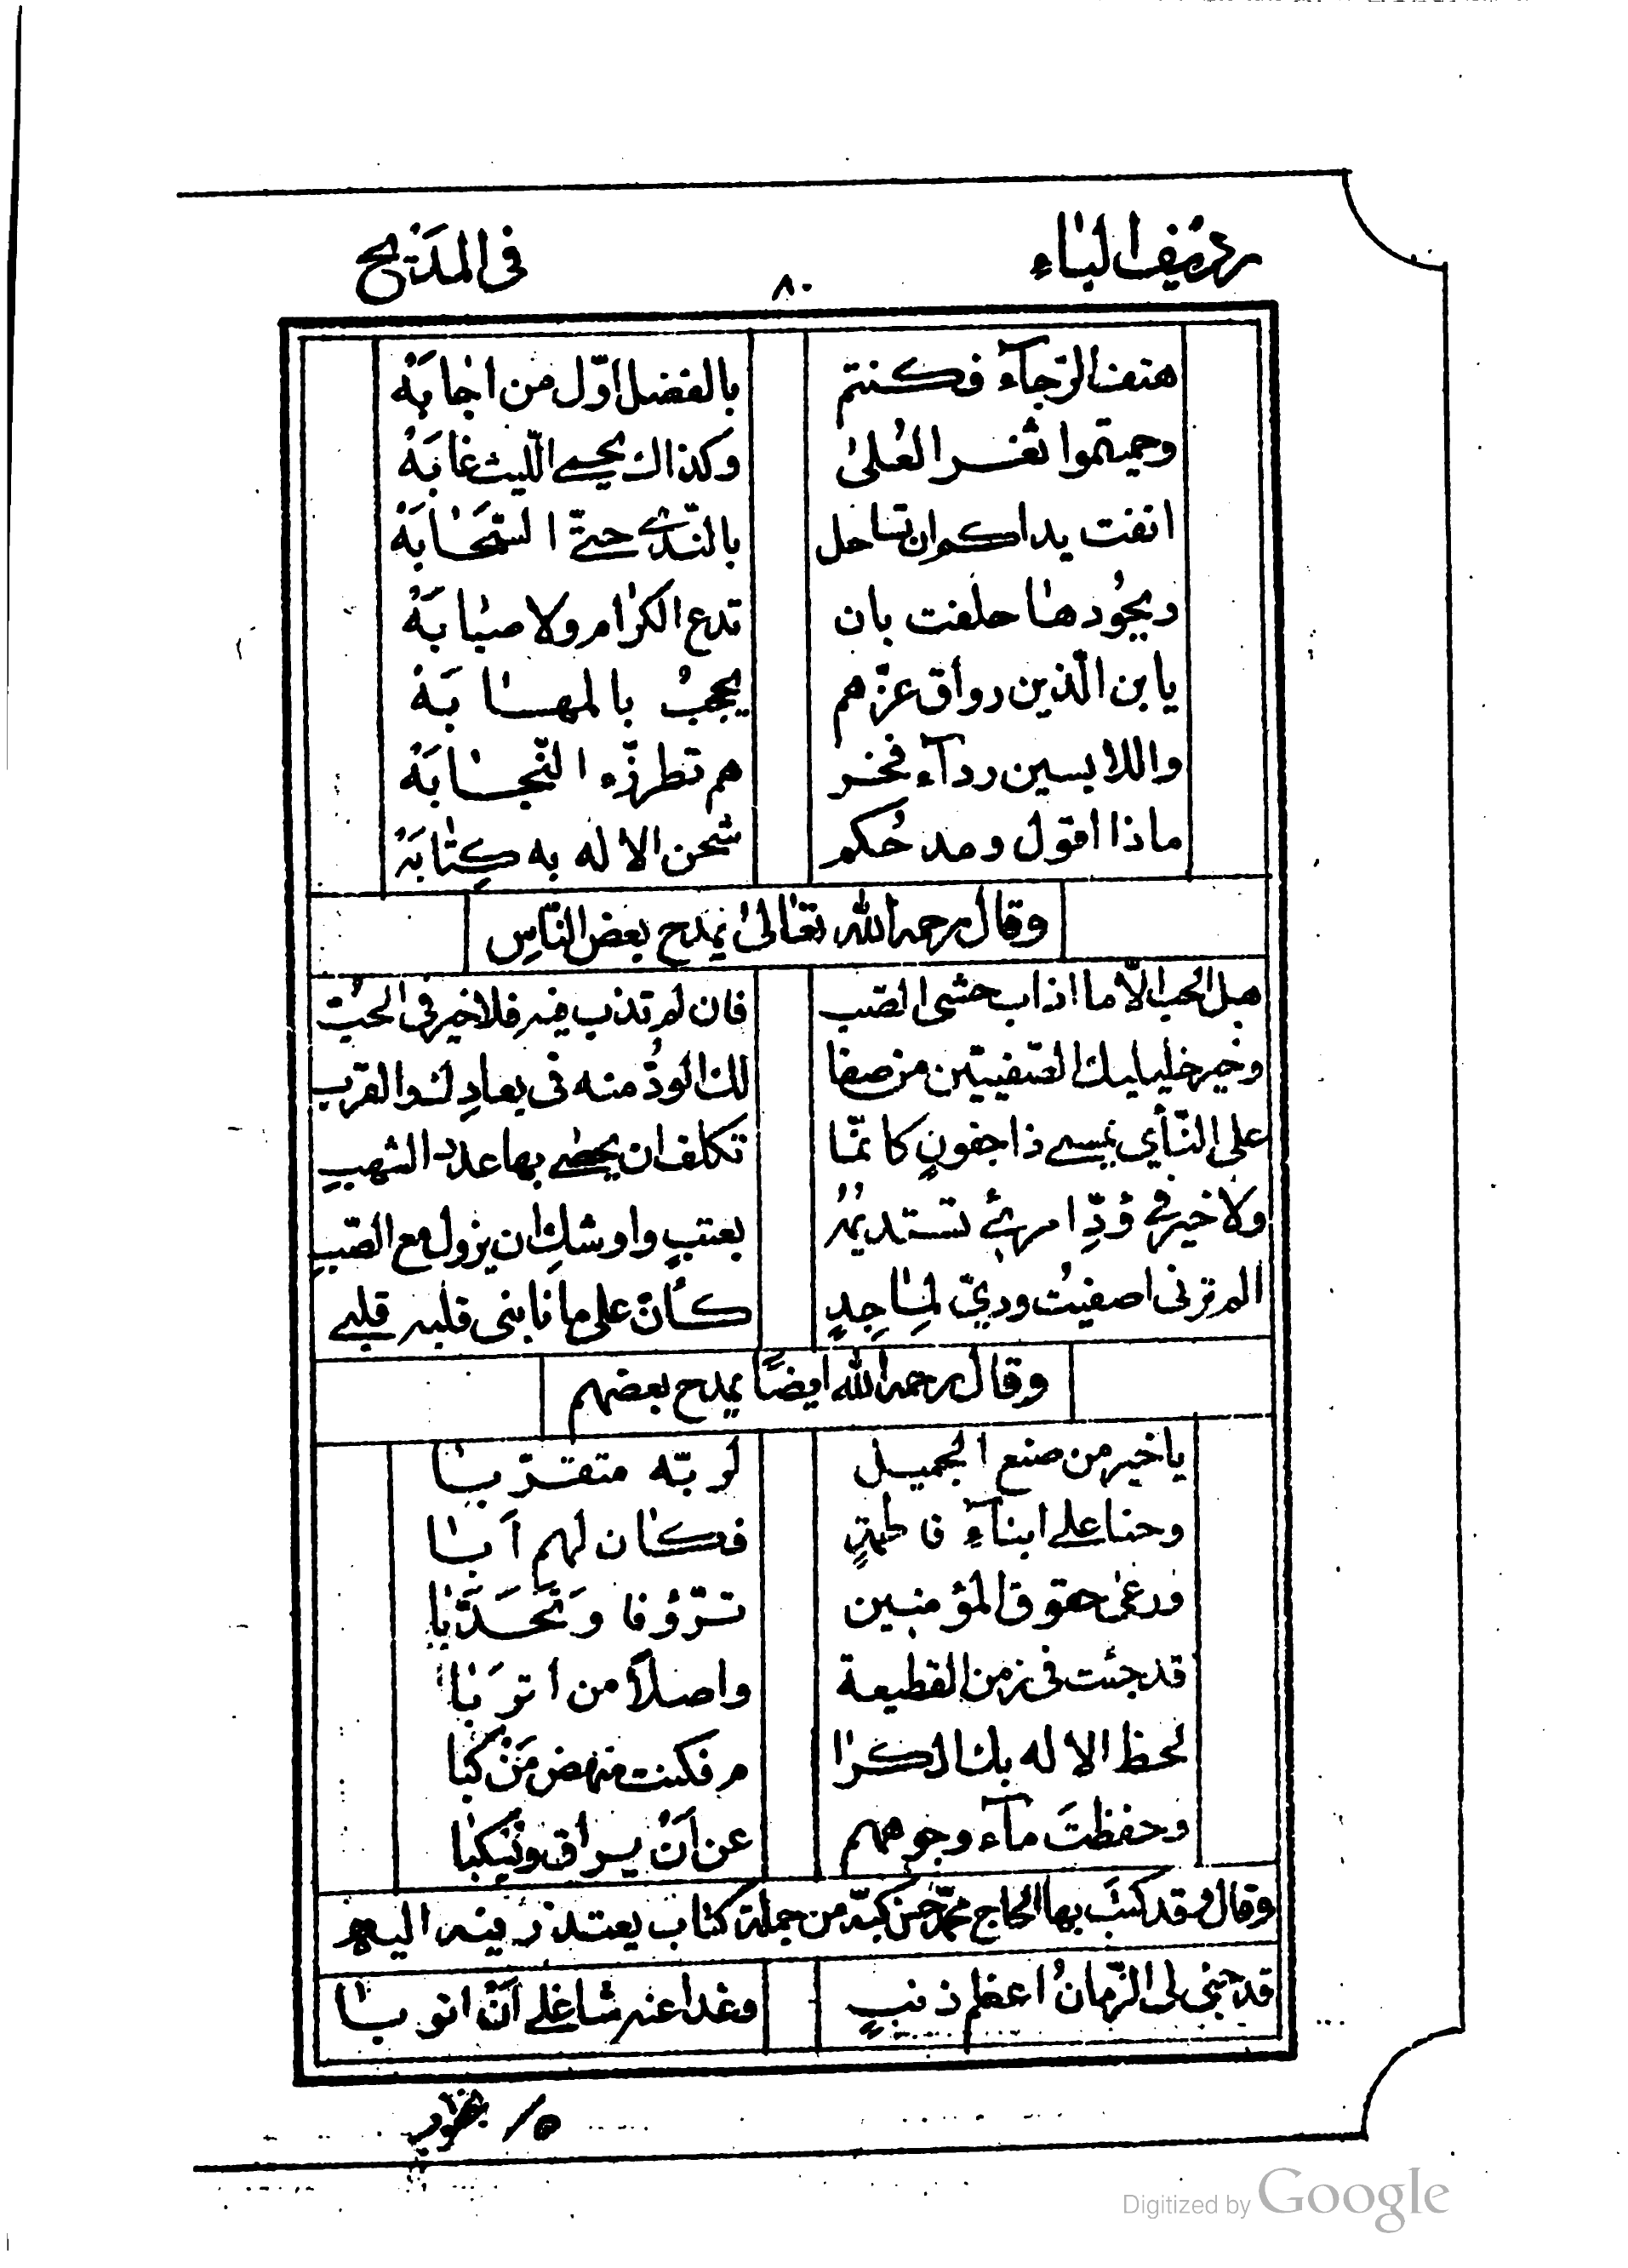 رديف الباء
٨٠
في المديح
هتف الرّجآء فكنتم بالفضل اوّل من اجابَهْ
وحميتموا ثغر العُلىٰ وكذاك يحمي اللّيث غابَهْ
انفت يداكم ان تساحل بالنّدى حتّى السّحابَهْ
وبجُودها حلفت بان تدع الكرام ولا صبابَهْ
يا بن الّذين رواق عزّهم يحجبُ بالمهابَهْ
واللابسين ردآء فخر هم تطرزّه النّجابَهْ
ماذا اقول ومدحُكم شحن الاله به كِتابَهْ
وقال رحمه الله تعالىٰ يمدح بعض النّاسِ
هل الحب الّا ما اذاب حشى الصّب فان لم تذب فيه فلا خير في الحُبّ
وخير خليليك الصّفيّين من صفا لك الودُّ منه في بعادِك والقرب
على النّأي يمسي ذا جفونٍ كانّما تكلف ان يحصي بها عدد الشهبِ
ولا خير في وُدِّ امرئٍ تستديمُهُ بعتبٍ واوشك ان يزول مع العتبِ
الم ترني اصفيتُ ودّيَ لماجِدٍ كأنّ على ما نابني قلبه قلبي
وقال رحمه الله ايضًا يمدح بعضهم
يا خير من صنع الجميل لربّه متقرّبا
وحنا على ابنآءِ فاطمةٍ فكان لهم اَبا
ورعىٰ حقوق المؤمنين ترّؤفا وَتَحَدّبا
قد جئت في زمن القطيعة واصلاً من اتربا
لحظ الاله بك الكرا م فكنت منهض مَنْ كبا
وحفظتَ مآء وجوههم عن اَنْ يراق ويُنكبا
وقال وقد كتبَ بها الحاج محمّد حسن كبّه من جملة كتاب يعتذر فيه اليه
قد جنى لي الزّمانُ اعظم ذنبٍ وغدا عنه شاغلي اَنْ اتوبا
Digitized by Google